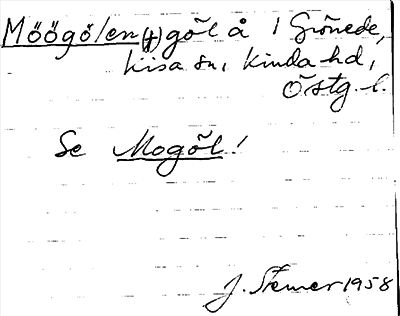 Möögölen(ɟ) göl å 1 Grönede,
Kisa sn, Kinda hd,
Östg. l.
Se Mogöl!
J. Stemer 1958